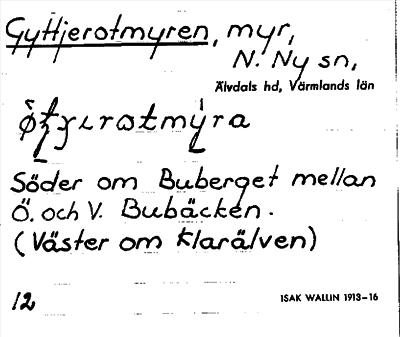 Gyttjerotmyren, myr,
N. Ny sn,
Älvdals hd, Värmlands län
Söder om Buberget mellan
Ö. och V. Bubäcken.
(Väster om Klarälven)
12 ISAK WALLIN 1913–16